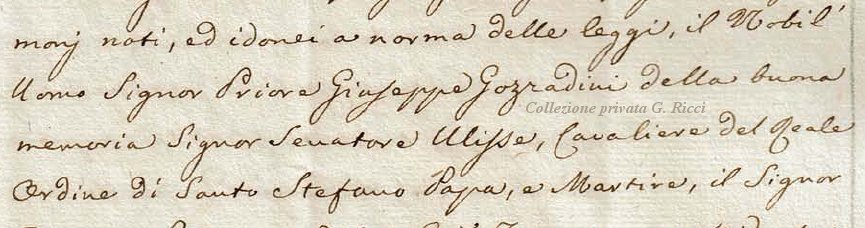 monj noti, ed idonei a norma delle leggi, il Nobil'
Uomo Signor Priore Giuseppe Gozzadini della buona
Collezione privata G. Ricci
memoria Signor Senatore Ulisse, Cavaliere del Reale
Ordine di Santo Stefano Papa, e Martire, il Signor